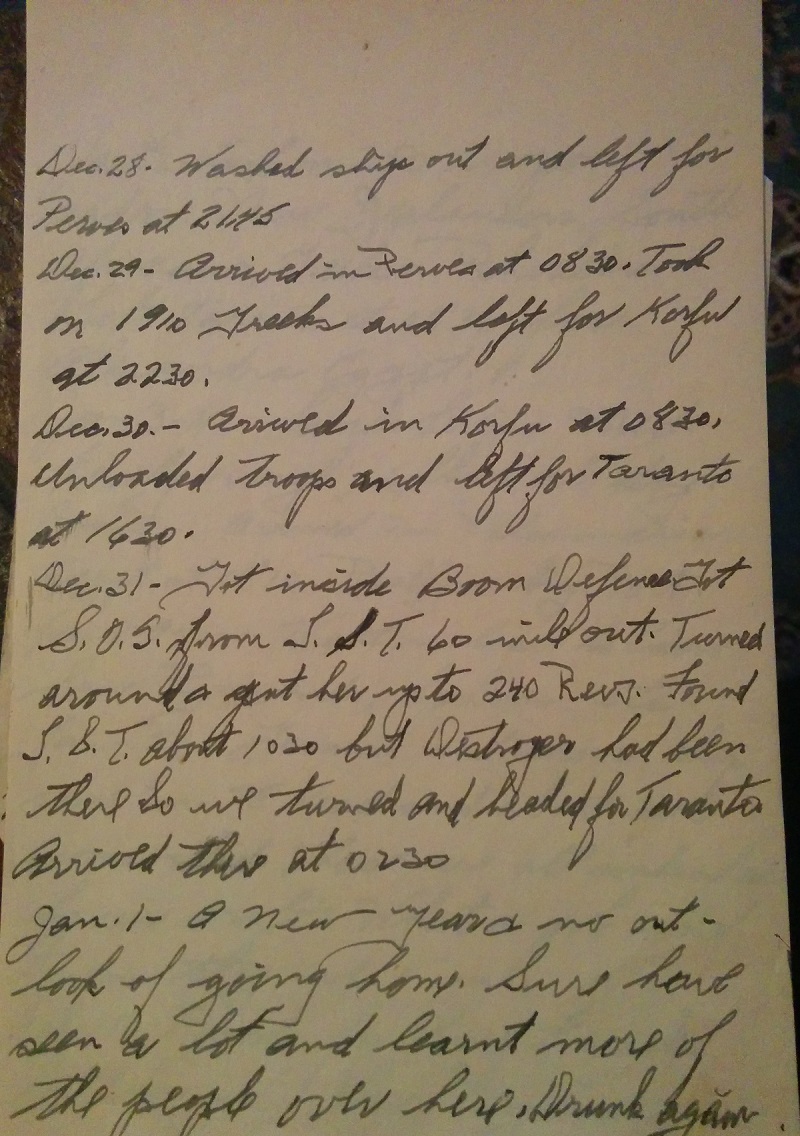 Dec. 28- Washed ship out and left for
Perves at 2145
Dec. 29- Arrived in Perves at 0830. Took
on 1910 Greeks and left for Korfu
at 2230.
Dec. 30.- Arived in Korfu at 0830.
Unloaded troops and left for Taranto
at 1630.
Dec. 31- Got inside Boom Defense Got
S.O.S. from L.S.T. 60 mile out. Turned
around & put her up to 240 Revs. Found
L.S.T. about 1030 but Destroyer had been
there so we turned and headed for Taranto
Arrived there at 0230
Jan. 1- A New Year & no out-
look of going home. Sure have
seen a lot and learnt more of
the people over here. Drunk again.